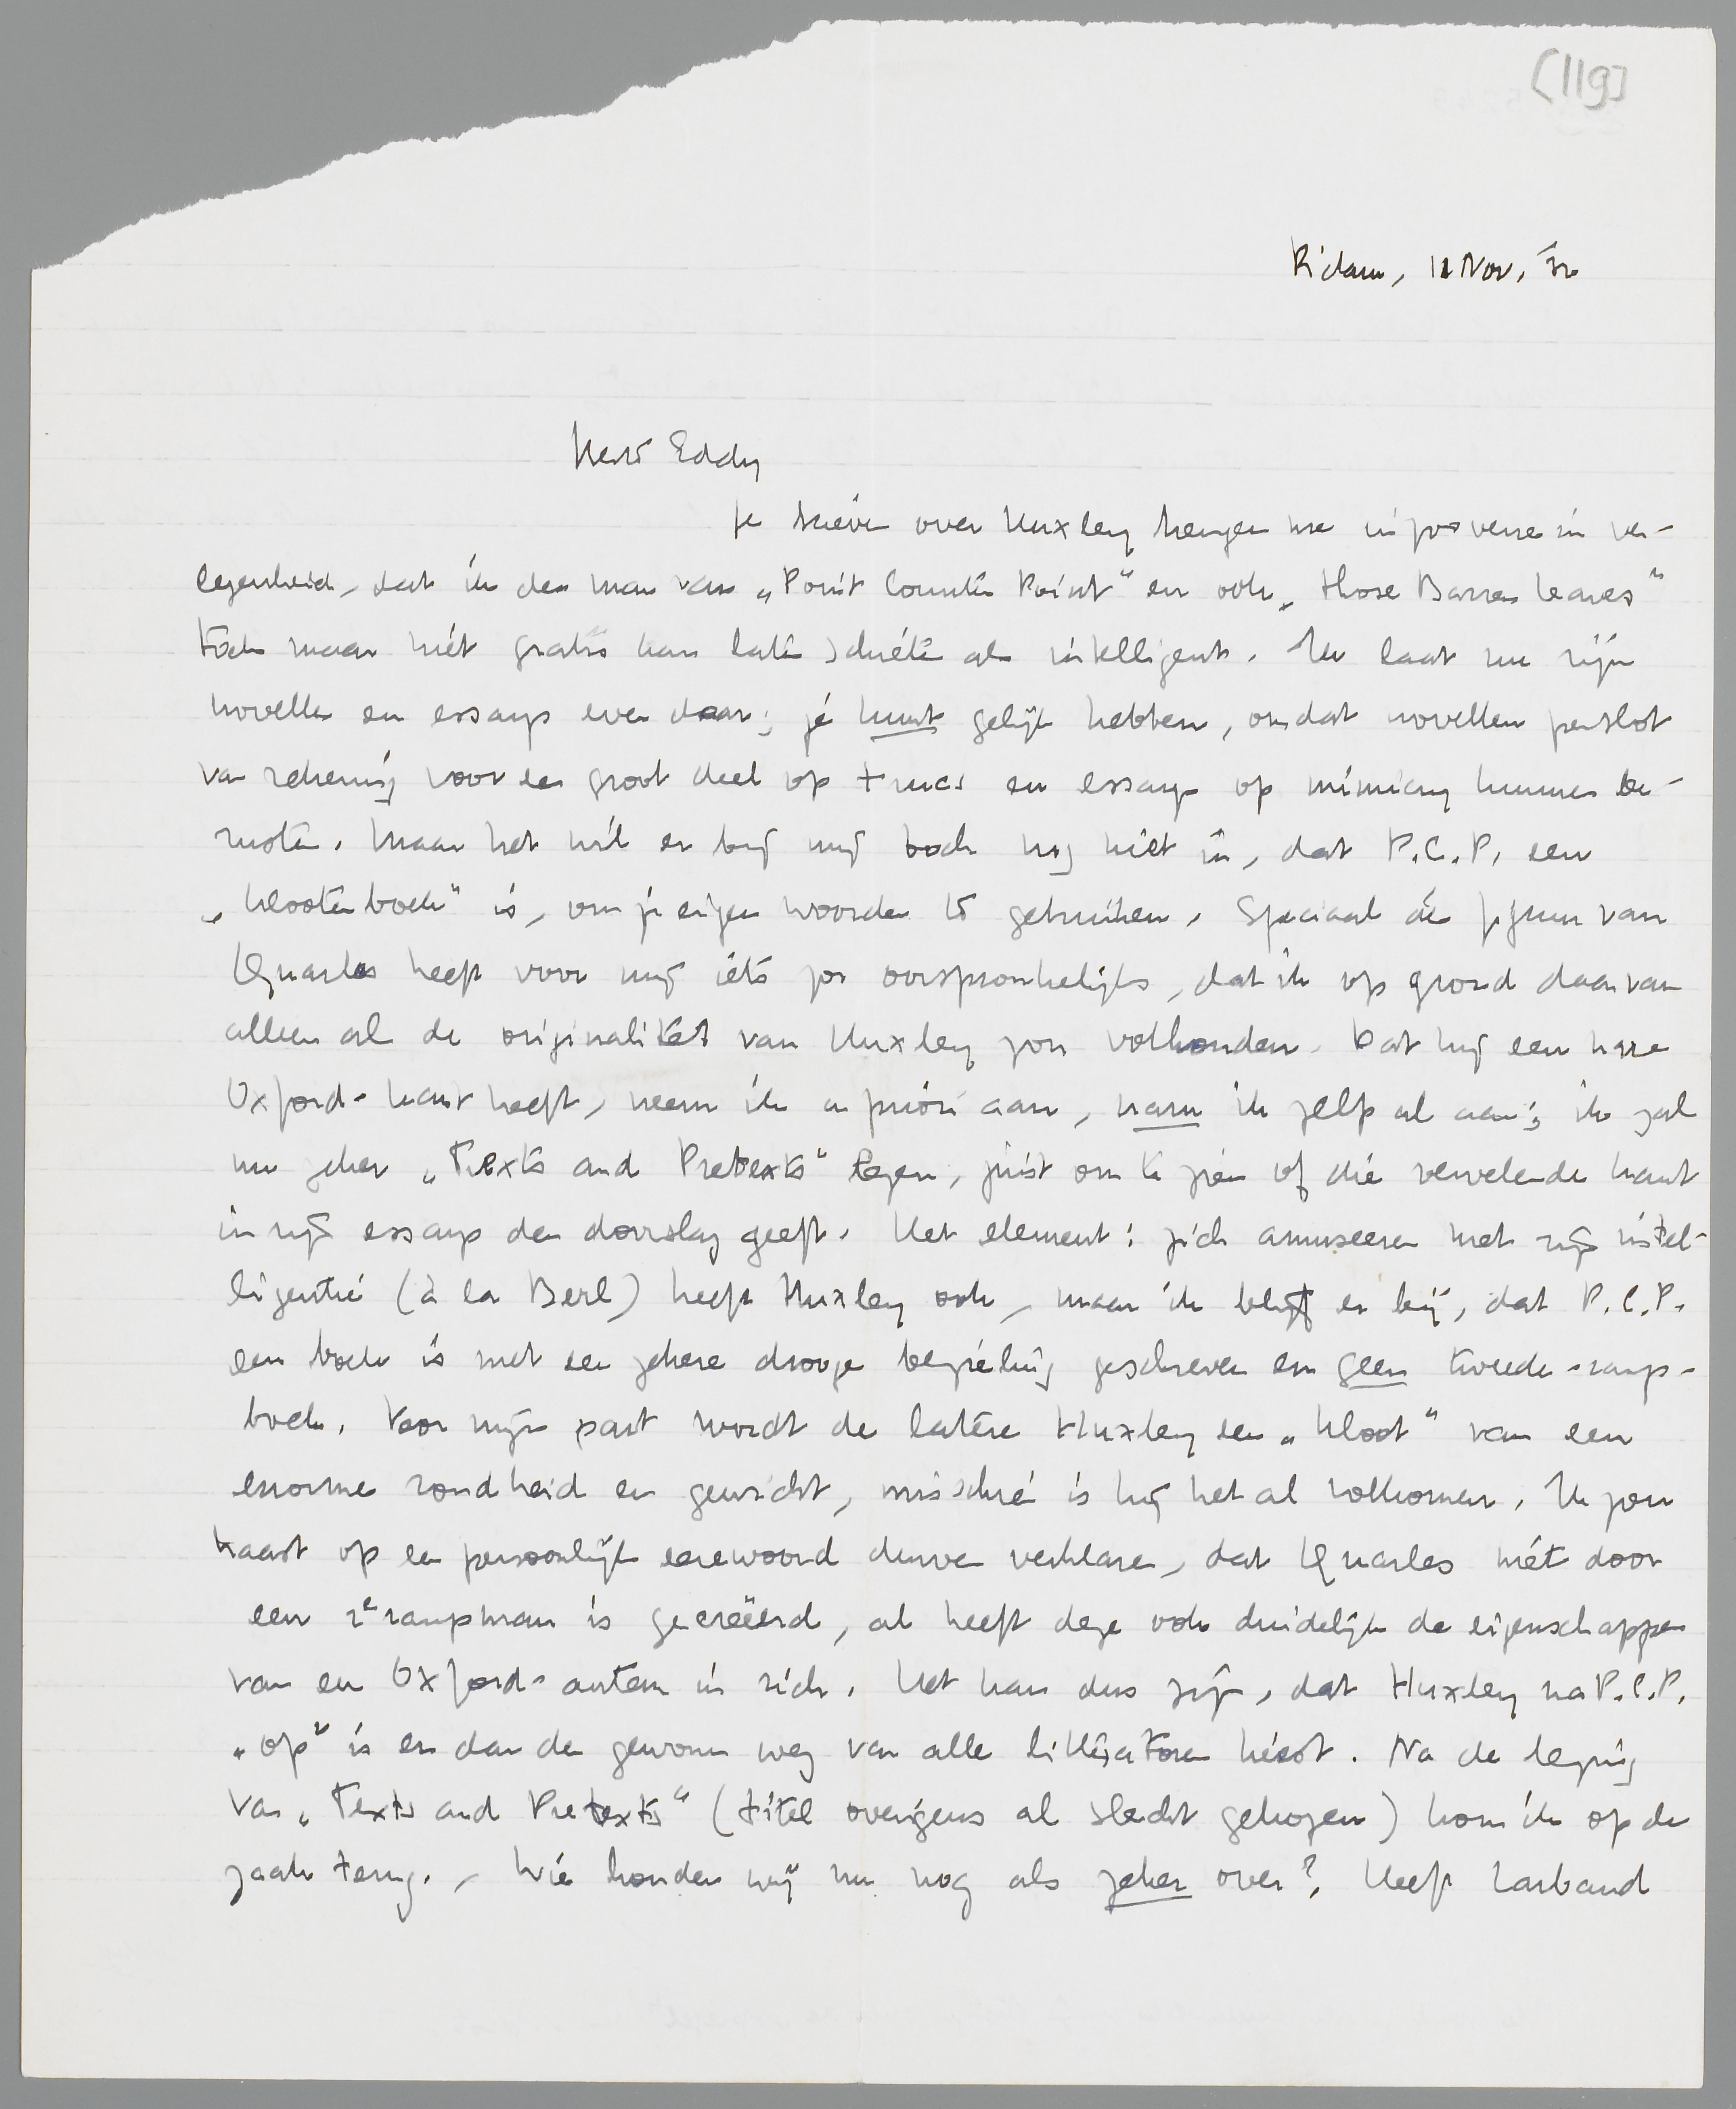 [119]
R'dam, 12 Nov. '32
Beste Eddy
Je brieven over Huxley brengen me in zooverre in ver-
legenheid, dat ik den man van „Point Counter Point" en ook „Those Barren Leaves"
toch maar niet gratis kan laten schieten als intelligent. Ik laat nu zijn
novellen en essays even daar; je kunt gelijk hebben, omdat novellen per slot
van rekening voor een groot deel op trucs en essays op mimicry kunnen be-
rusten. Maar het wil er bij mij toch nog niet in, dat P.C.P. een
„klootenboek" is, om je eigen woorden te gebruiken. Speciaal de figuur van
Quarles heeft voor mij iets zoo oorspronkelijks, dat ik op grond daarvan
alleen al de originaliteit van Huxley zou volhouden. Dat hij een nare
Oxford-kant heeft, neem ik a priori aan, nam ik zelf al aan; ik zal
nu zeker „Texts and Pretexts" lezen, juist om te zien of die vervelende kant
in zijn essays den doorslag geeft. Het element: zich amuseeren met zijn intel-
ligentie (à la Berl) heeft Huxley ook, maar ik blijf er bij, dat P.C.P.
een boek is met een zekere drooge bezieling geschreven en geen tweede-rangs-
boek. Voor mijn part wordt de latere Huxley een „kloot" van een
enorme rondheid en gewicht, misschien is hij het al volkomen. Ik zou
haast op een persoonlijk eerewoord durven verklaren, dat Quarles niet door
een 2e rangsman is gecreëerd, al heeft deze ook duidelijk de eigenschappen
van een Oxford-auteur in zich. Het kan dus zijn, dat Huxley na P.C.P.
„op" is en dan den gewonen weg van alle litteratoren kiest. Na de lezing
van „Texts and Pretexts" (titel overigens al slecht gekozen) kom ik op de
zaak terug. – Wie houden wij nu nog als zeker over? Heeft Larbaud